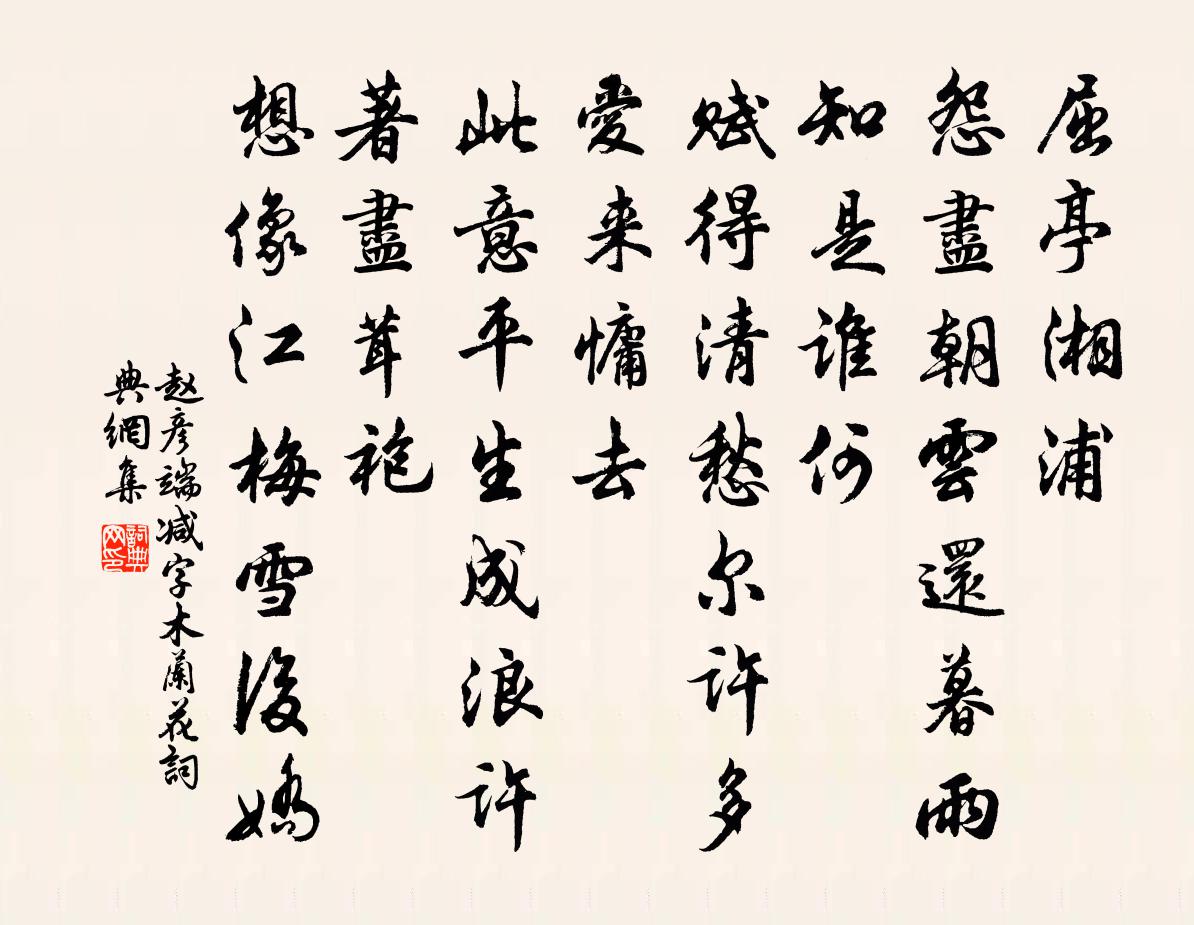 屈亭湘浦
怨盡朝雲還暮雨
知是誰何
賦得清愁尔許多
愛来慵去
此意平生成浪許
著盡茸袍
想像江梅雪後嬌
赵彦端减字木蘭花詞
典網集
詞典网印